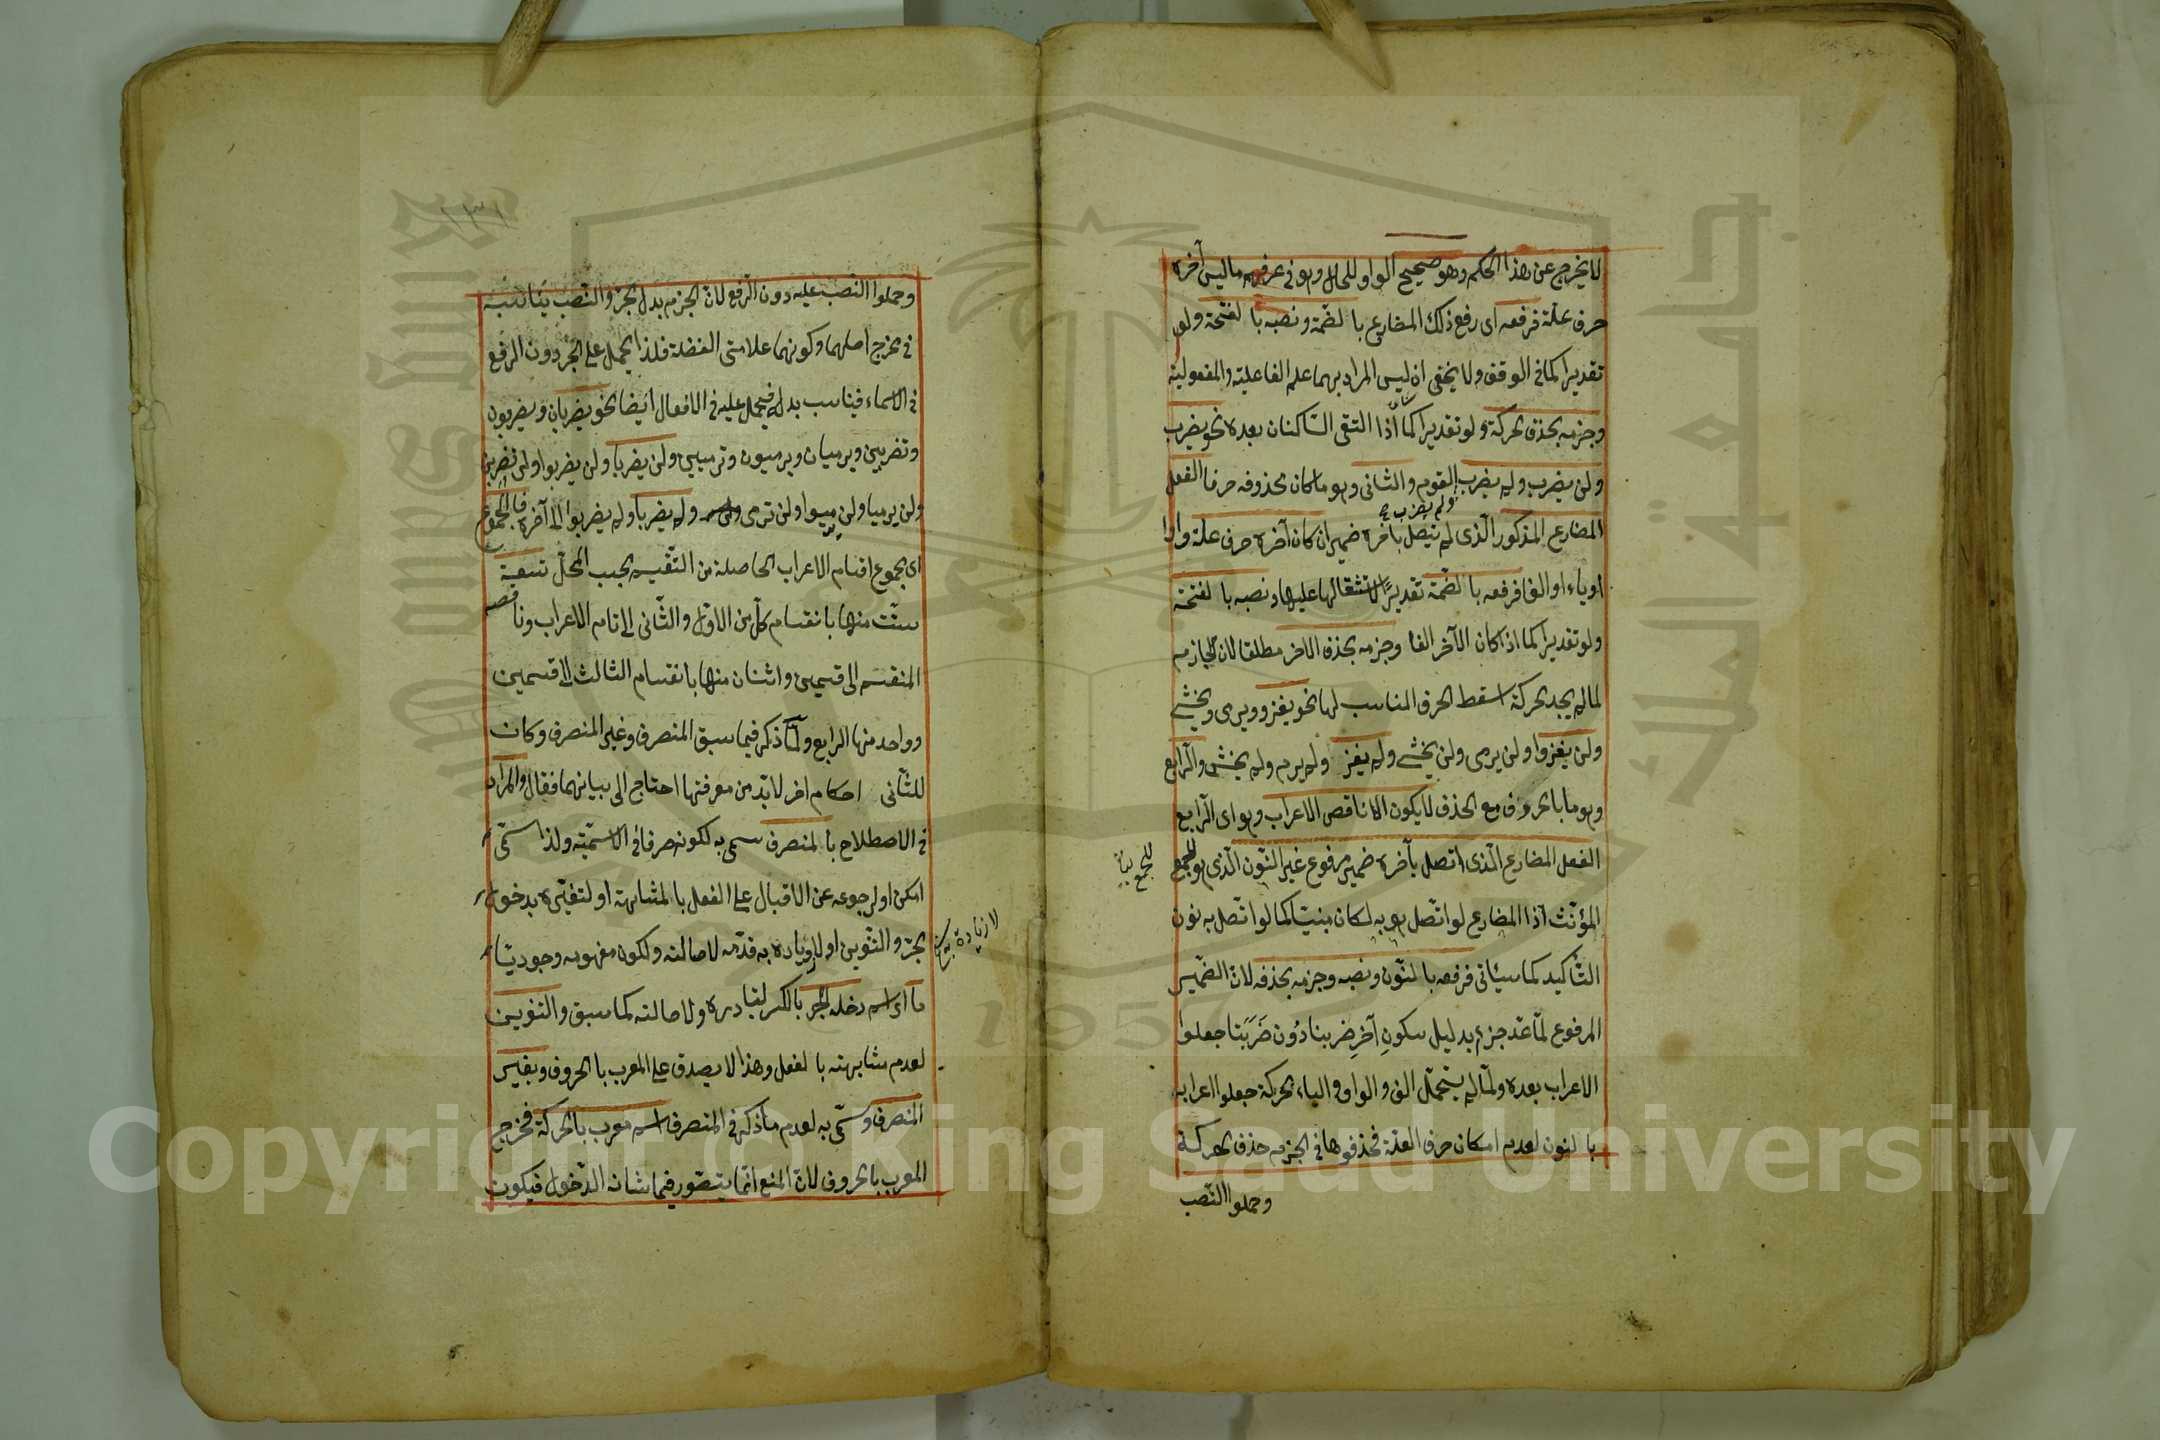 لا يخرج عن هذا الحكم وهو صحيح الواو للحال وهو في عرفهم ما ليس آخره
حرف علة فرفعه اى رفع ذلك المضارع بالضمة ونصبه بالفتحة ولو
تقديرا كما في الوقف ولا يخفى ان ليس المراد بهما علم الفاعلية والمفعولية
وجزمه بحذف الحركة ولو تقديرا كما اذا التقى الساكنان بعده نحو يضرب
ولن يضرب ولم يضرب القوم والثانى وهو ما كان محذوفه حرفا الفعل
ولم يضرب
المضارع المذكور الّذى لم يتصل بآخره ضمير ان كان آخره حرف علة واوا
او ياء او الفا فرفعه بالضمة تقديرًا لاستثقالها عليها ونصبه بالفتحة
ولو تقديرا كما اذا كان الآخر الفا وجزمه بحذف الاخر مطلقا لان الجازم
لما لم يجد الحركة اسقط الحرف المناسب لها نحو يغزو ويرمى ويخشى
ولن يغزوا ولن يرمى ولن يخشى ولم يغز ولم يرم ولم يخش والرابع
وهو ما بالحروف مع الحذف لا يكون الا ناقص الاعراب وهو اى الرابع
الفعل المضارع الّذى اتصل بآخره ضمير مرفوع غير النّون الّذى هو للجمع
للجمع
المؤنّث اذا المضارع لو اتّصل هو به لكان مبنيّا كما لو اتّصل به نون
التّأكيد كما سيأتى فرفعه بالنّون ونصبه وجزمه بحذفه لانّ الضّمير
المرفوع لمّا عدّ جزء بدليل سكونِ آخرِ ضربنا دُون ضَرَبَنا جعلوا
الاعراب بعده ولمّا لم يتحمّل الف والواو والياء الحركة جعلوا اعرابه
بالنون لعدم امكان حرف العلة فحذفوها في الجزم حذف الحركة
وحملوا النّصب
١٣١
وحملوا النّصب عليه دون الرّفع لانّ الجزم بدل الجرّ والنّصب يناسبه
في مخرج اصلهما وكونهما علامتى الفضلة فلذا يحمل على الجرّ دون الرفع
في الاسماء فيناسب بدله فيحمل عليه في الافعال ايضا نحو يضربان ويضربون
وتضربين ويرميان ويرميون وترميين ولن يضربا ولن يضربوا ولن تضربى
ولن يرميا ولن يرميوا ولن ترمى ولم يضربا ولم يضربوا الى آخره فالمجموع
اى مجموع اقسام الاعراب الحاصلة من التّقسيم بحسب المحلّ تسعة
ستّ منها بانقسام كلّ من الاوّل والثّانى الى تام الاعراب وناقصه
المنقسم الى قسمين واثنان منها بانقسام الثالث الى قسمين
وواحد منها الرابع ولمّا ذكر فيما سبق المنصرف وغير المنصرف وكان
للثّانى احكام اخر لابدّ من معرفتها احتاج الى بيانهما فقال والمراد
في الاصطلاح بالمنصرف سمى به لكونه صرفا في الاسميّة ولذا سمّى
امكن او لرجوعه عن الاقبال على الفعل بالمشابهة او لتغيّره بدخول
الجرّ والتّنوين او لزيادة به قدّمه لاصالته ولكون مفهومه وجوديّا
لا زيادة
ما اى اسم دخله الجر بالكسر لتبادره ولاصالته كما سبق والتنوين
لعدم مشابهته بالفعل وهذا لا يصدق على المعرب بالحروف وبغير
المنصرف وسمّى به لعدم ما ذكر في المنصرف اسم معرب بالحركة فخرج
المعرب بالحروف لانّ المنع انّما يتصّور فيما شانه الدّخول فيكون
جامعة الملك سعود
King Saud University
1957
Copyright © King Saud University